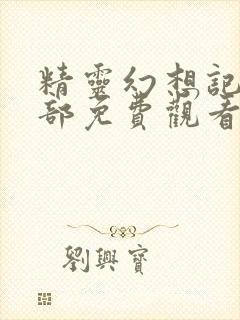 精靈幻想記
部免費觀看
劉興寶